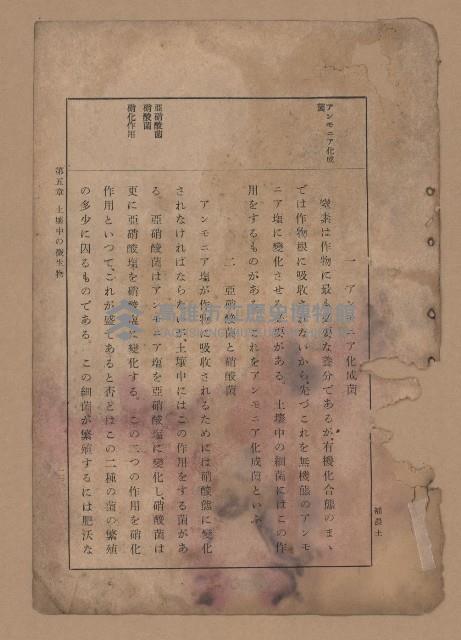 アンモニア化成
菌
一 アンモニア化成菌
窒素は作物に最も必要な養分であるが、有機化合態のまゝ
では作物根に吸收されないから、先づこれを無機態のアンモ
ニア塩に變化させる必要がある。土壤中の細菌にはこの作
用をするものがあ これをアンモニア化成菌といふ。
亞硝酸菌
硝酸菌
硝化作用
二 亞硝酸菌と硝酸菌
アンモニア塩が作物に吸收されるためには硝酸態に變化
されなければならたいが、土壤中にはこの作用をする菌があ
る。亞硝酸菌はアンモニア塩を亞硝酸塩に變化し、硝酸菌は
更に亞硝酸塩を硝酸塩に變化する。この二つの作用を硝化
作用といつて、これが盛であると否とはこの二種の菌の繁殖
の多少に因るものである。この細菌が繁殖するには肥沃な
第五章 土壤中の微生物
高雄市立歷史博物館
KAOHSIUNG MUSEUM OF HISTORY